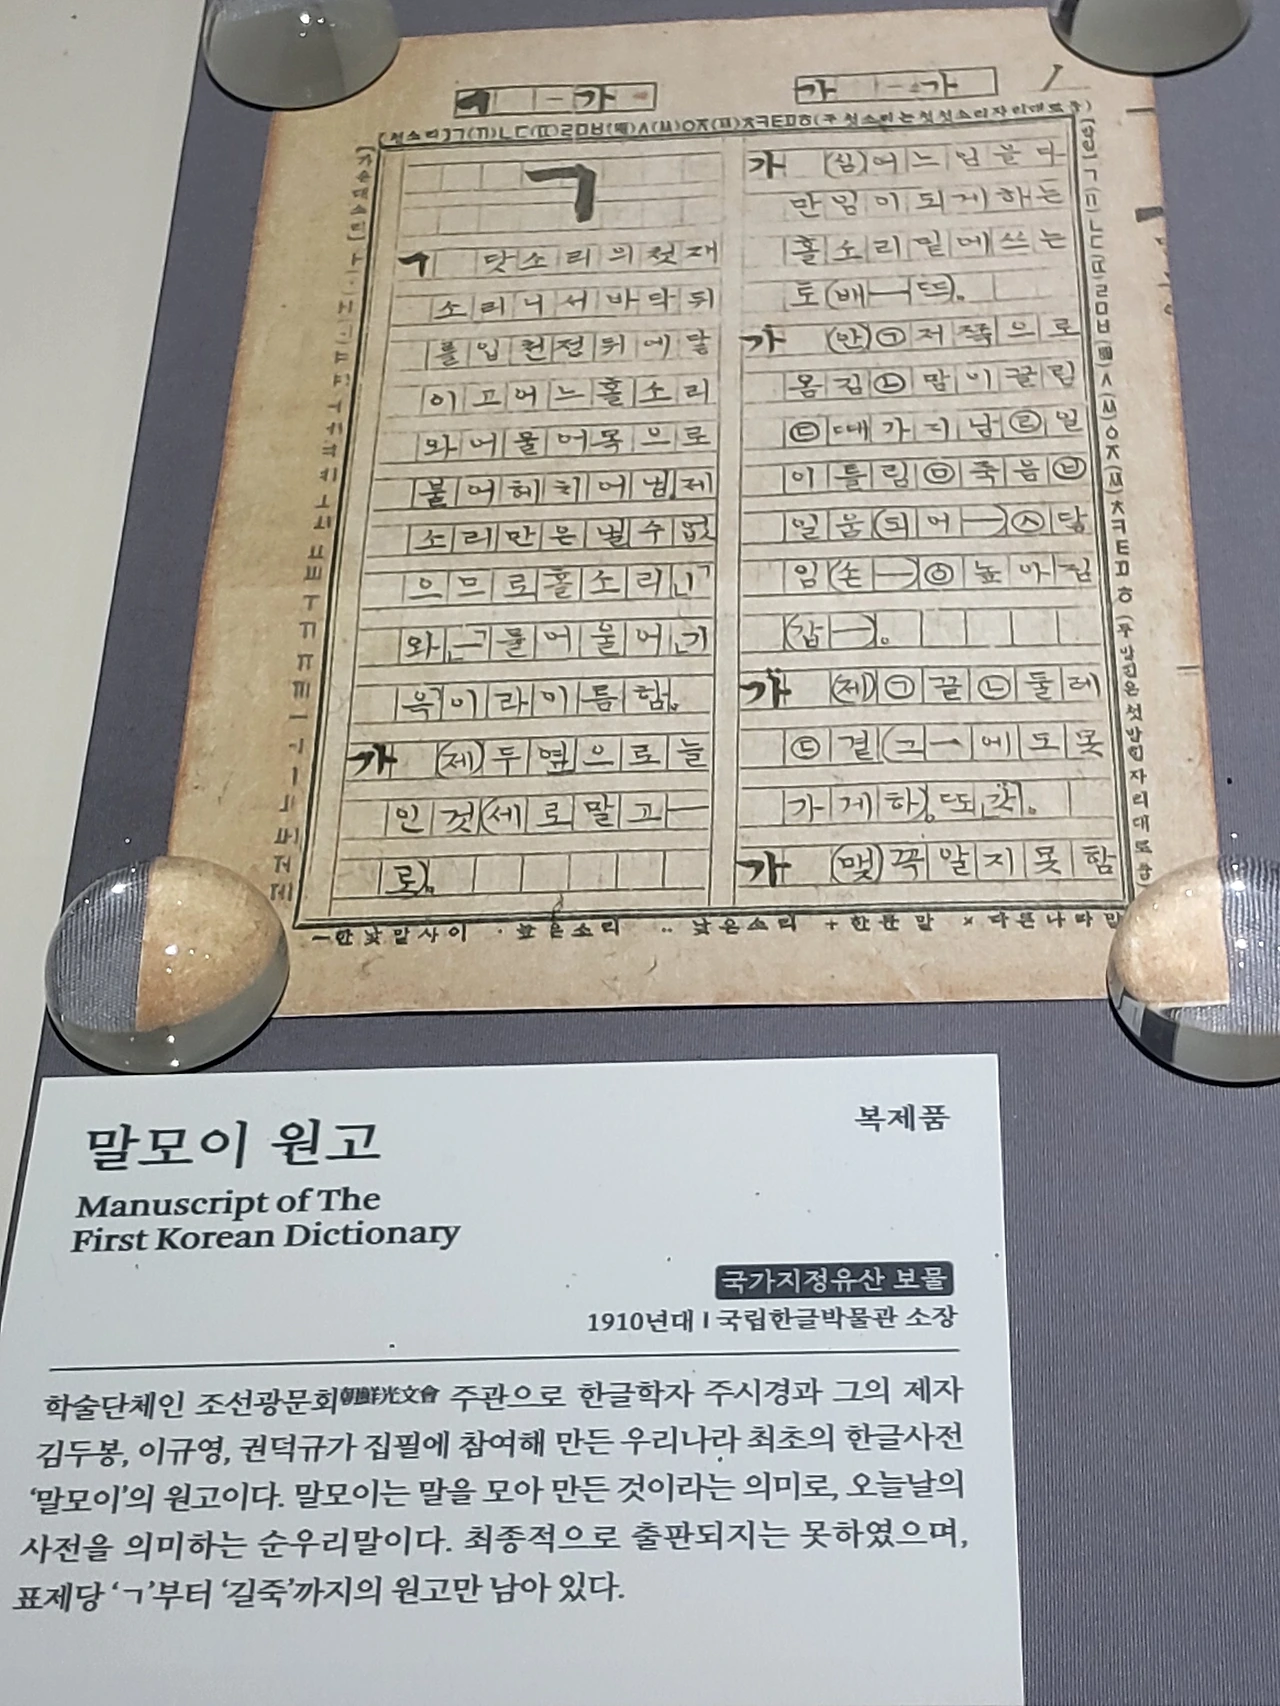 ㄱ - 가
가 - 가
ㄱ
ㄱ 닷소리의첫재
소리니서바닥뒤
를입천정뒤에닿
이고어느홀소리
와어울어목으로
불어헤치어냄제
소리만은낼수없
으므로홀소리「ㅣ」
와「ㅡ」를어울어「기
윽」이라이름함。
가 (제)두옆으로늘
인것(세로말고―
로)。
가 (심)어느임본다
만임이되게하는
홀소리밑에쓰는
토(배―뜨)。
가 (안)㉠저쪽으로
옴김㉡맘이끌림
㉢때가지남㉣일
이틀림㉤죽음㉥
일움(되어―)㉦닿
임(손―)㉧높아짐
(값―)。
가 (제)㉠끝㉡둘레
㉢곁(그―에도못
가게하)。또갓。
가 (맺)꼭알지못함
―한낮말사이 ·높은소리 ‥낮은소리 +한문말 ×다른나라말
말모이 원고
복제품
Manuscript of The
First Korean Dictionary
국가지정유산 보물
1910년대 I 국립한글박물관 소장
학술단체인 조선광문회朝鮮光文會 주관으로 한글학자 주시경과 그의 제자
김두봉, 이규영, 권덕규가 집필에 참여해 만든 우리나라 최초의 한글사전
‘말모이’의 원고이다. 말모이는 말을 모아 만든 것이라는 의미로, 오늘날의
사전을 의미하는 순우리말이다. 최종적으로 출판되지는 못하였으며,
표제당 ‘ㄱ’부터 ‘길죽’까지의 원고만 남아 있다.